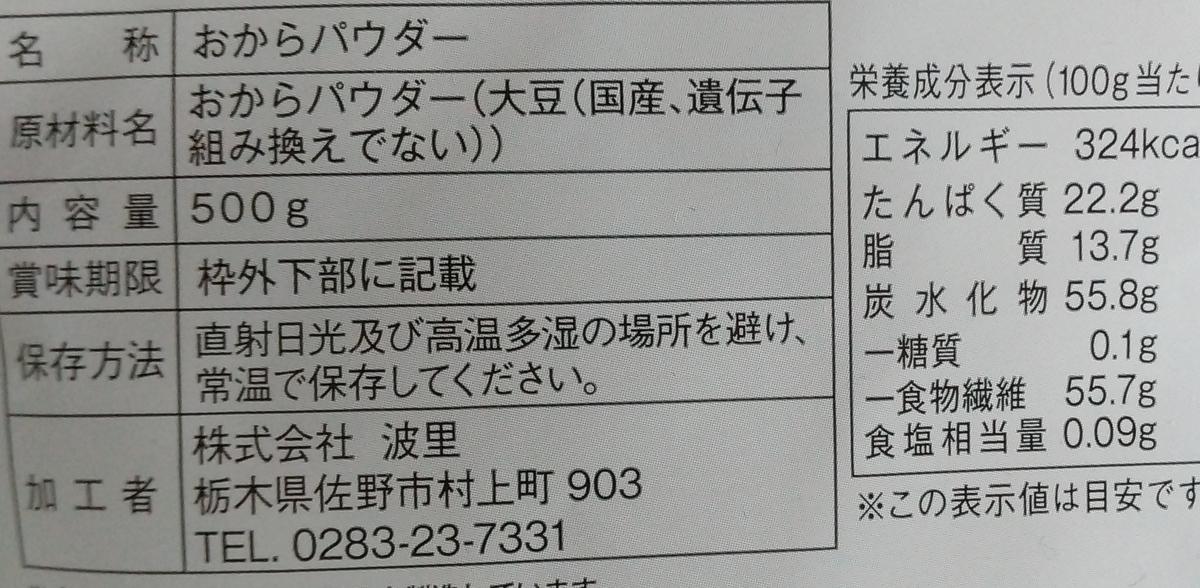 名称 おからパウダー
原材料名 おからパウダー(大豆(国産、遺伝子
組み換えでない))
内容量 500g
賞味期限 枠外下部に記載
保存方法 直射日光及び高温多湿の場所を避け、
常温で保存してください。
加工者 株式会社 波里
栃木県佐野市村上町 903
TEL. 0283-23-7331
栄養成分表示(100g当た
エネルギー 324kca
たんぱく質 22.2g
脂質 13.7g
炭水化物 55.8g
ー糖質 0.1g
ー食物繊維 55.7g
食塩相当量 0.09g
※この表示値は目安です